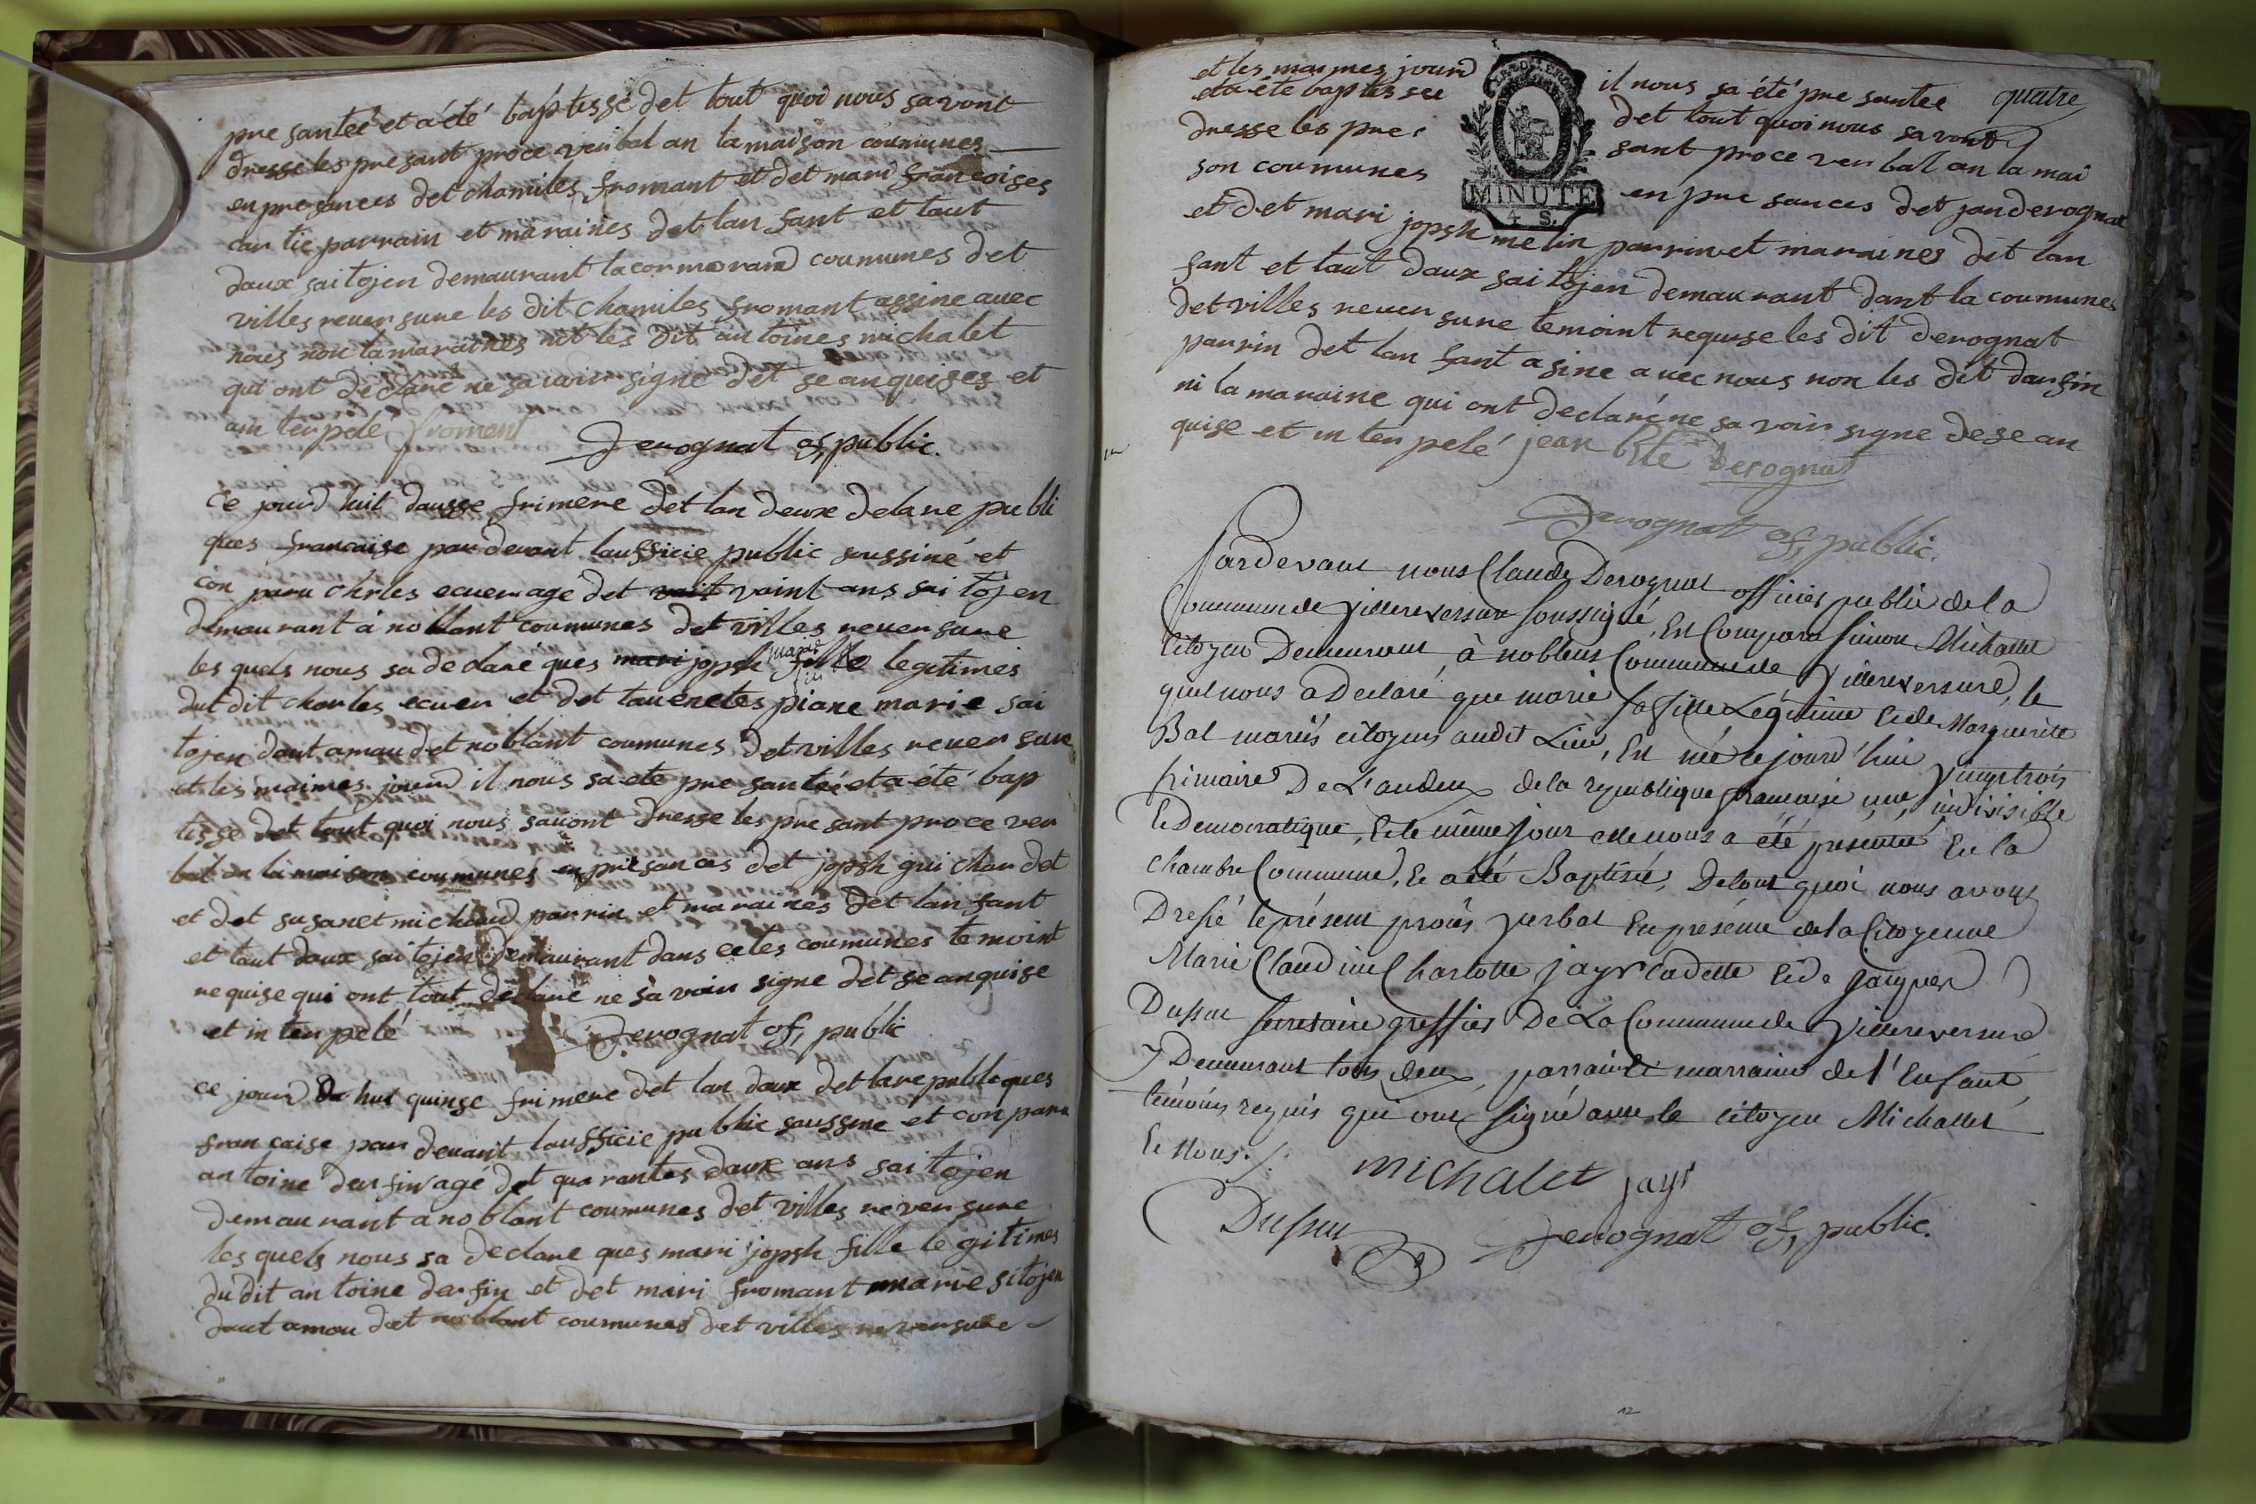 pre santeé et a été baptissé det tout quoi nous savont
dresse les presant proce veribal an la maison coumunes
en presances det chamiles fromant et det mari francoises
car tie parrain et maraines det lan fant et tout
daux saitojen demaurant la cormorand coumunes det
villes rever sure les dit chamiles fromant assine avec
nous non la maraines not les dit an toines michalet
qui ont declaré ne savoir signe det se anquises et
ain ter pele froment
Derognat of, public.
Ce jourd huit dausse frimere det lan deux dela re publi
ques francaise par devant laufficie public soussiné et
con paru chrles ecuer age det vait vaint ans sai tojen
demaurant à noblant coumunes det villes rever sure
les quels nous sa declare ques mari jopsh marie fille legitimes
dut dit charles ecuer et det tauenetes piane marie sai
tojen daut a mau det noblant coumunes det villes rever sure
et les maimes jourd il nous sa ete pre santeé et a été bap
tisse det tout quoi nous sauont dresse les pre sant proce ver
bal an la maison coumunes en presances det jopsh guichar det
et det susanet michaud parrin et maraines det lan fant
et tout daux sai tojen demaurant dans cetes coumunes temoint
requise qui ont tout declare ne sa voir signe det se anquise
et in ter pelé Derognat of, public
ce jourd hut quinse frimere det lan daux det la re publiques
francaise par devant laufficie public saussine et con paru
an toine darfin agé det quarantes daux ans sai tojen
demaurant a noblant coumunes det villes rever sure
les quels nous sa declare ques mari jopsh fille legitimes
du dit an toine darfin et det mari fromant marie sitojen
daut a mau det noblant coumunes det villes rever sure
quatre
et les maimes jourd il nous sa été pre santee
et a été baptissee det tout quoi nous savont
dresse les pre sant proce ver bal an la mai
son coumunes en pre sances det jan derognat
MINUTE
4 S.
et det mari jopsh melin parrin et maraines det lan
fant et taut daux sai tojen demaurant dant la coumunes
det villes rever sure temoint requise les dit derognat
parrin det lan fant a sine avec nous non les dit darfin
ni la maraine qui ont declaré ne sa voir signe de se an
quise et in ter pelé jean Bte Derognat
Derognat of, public.
Pardevant nous Claude Derognat officier public de la
Commune de Villereversure soussigné, Est Comparu Simon Michallet
Citoyen Demeurant à noblens Commune de Villereversure, le
quel nous a Declaré que marie sa fille Légitime & de Marguerite
Bal mariés citoyens audit Lieu, Est née cejourd'hui vingt trois
frimaire De L'an deux de la republique francaise une, indivisible
& democratique, & le même jour elle nous a été presentée En la
chambre Commune, & a été Baptisée, De tout quoi nous avons
Dressé le présent procès verbal En présence de la Citoyenne
Marie Claudine Charlotte Jayr Cadette & de Jacques
Dufour secretaire greffier De La Commune de Villereversure
y Demeurant tous deux, parrain & marraine de l'Enfant,
témoins requis qui ont signé avec le citoyen Michallet
& Nous.
MiChalet Jayr
Dufour Derognat of, public.
12